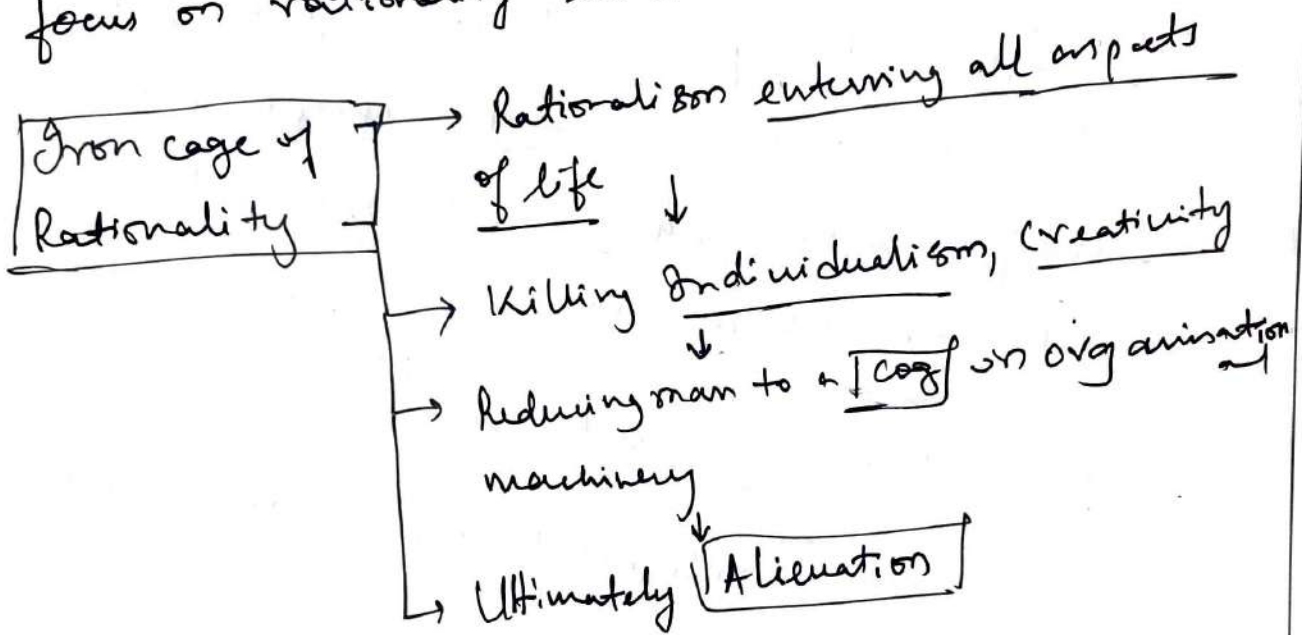 focus on rationality
Iron cage of
Rationality
→ Rationalism entering all aspects
of life ↓
→ Killing Individualism, Creativity
↓
→ Reducing man to a cog in organisational
machinery
↓
→ Ultimately Alienation